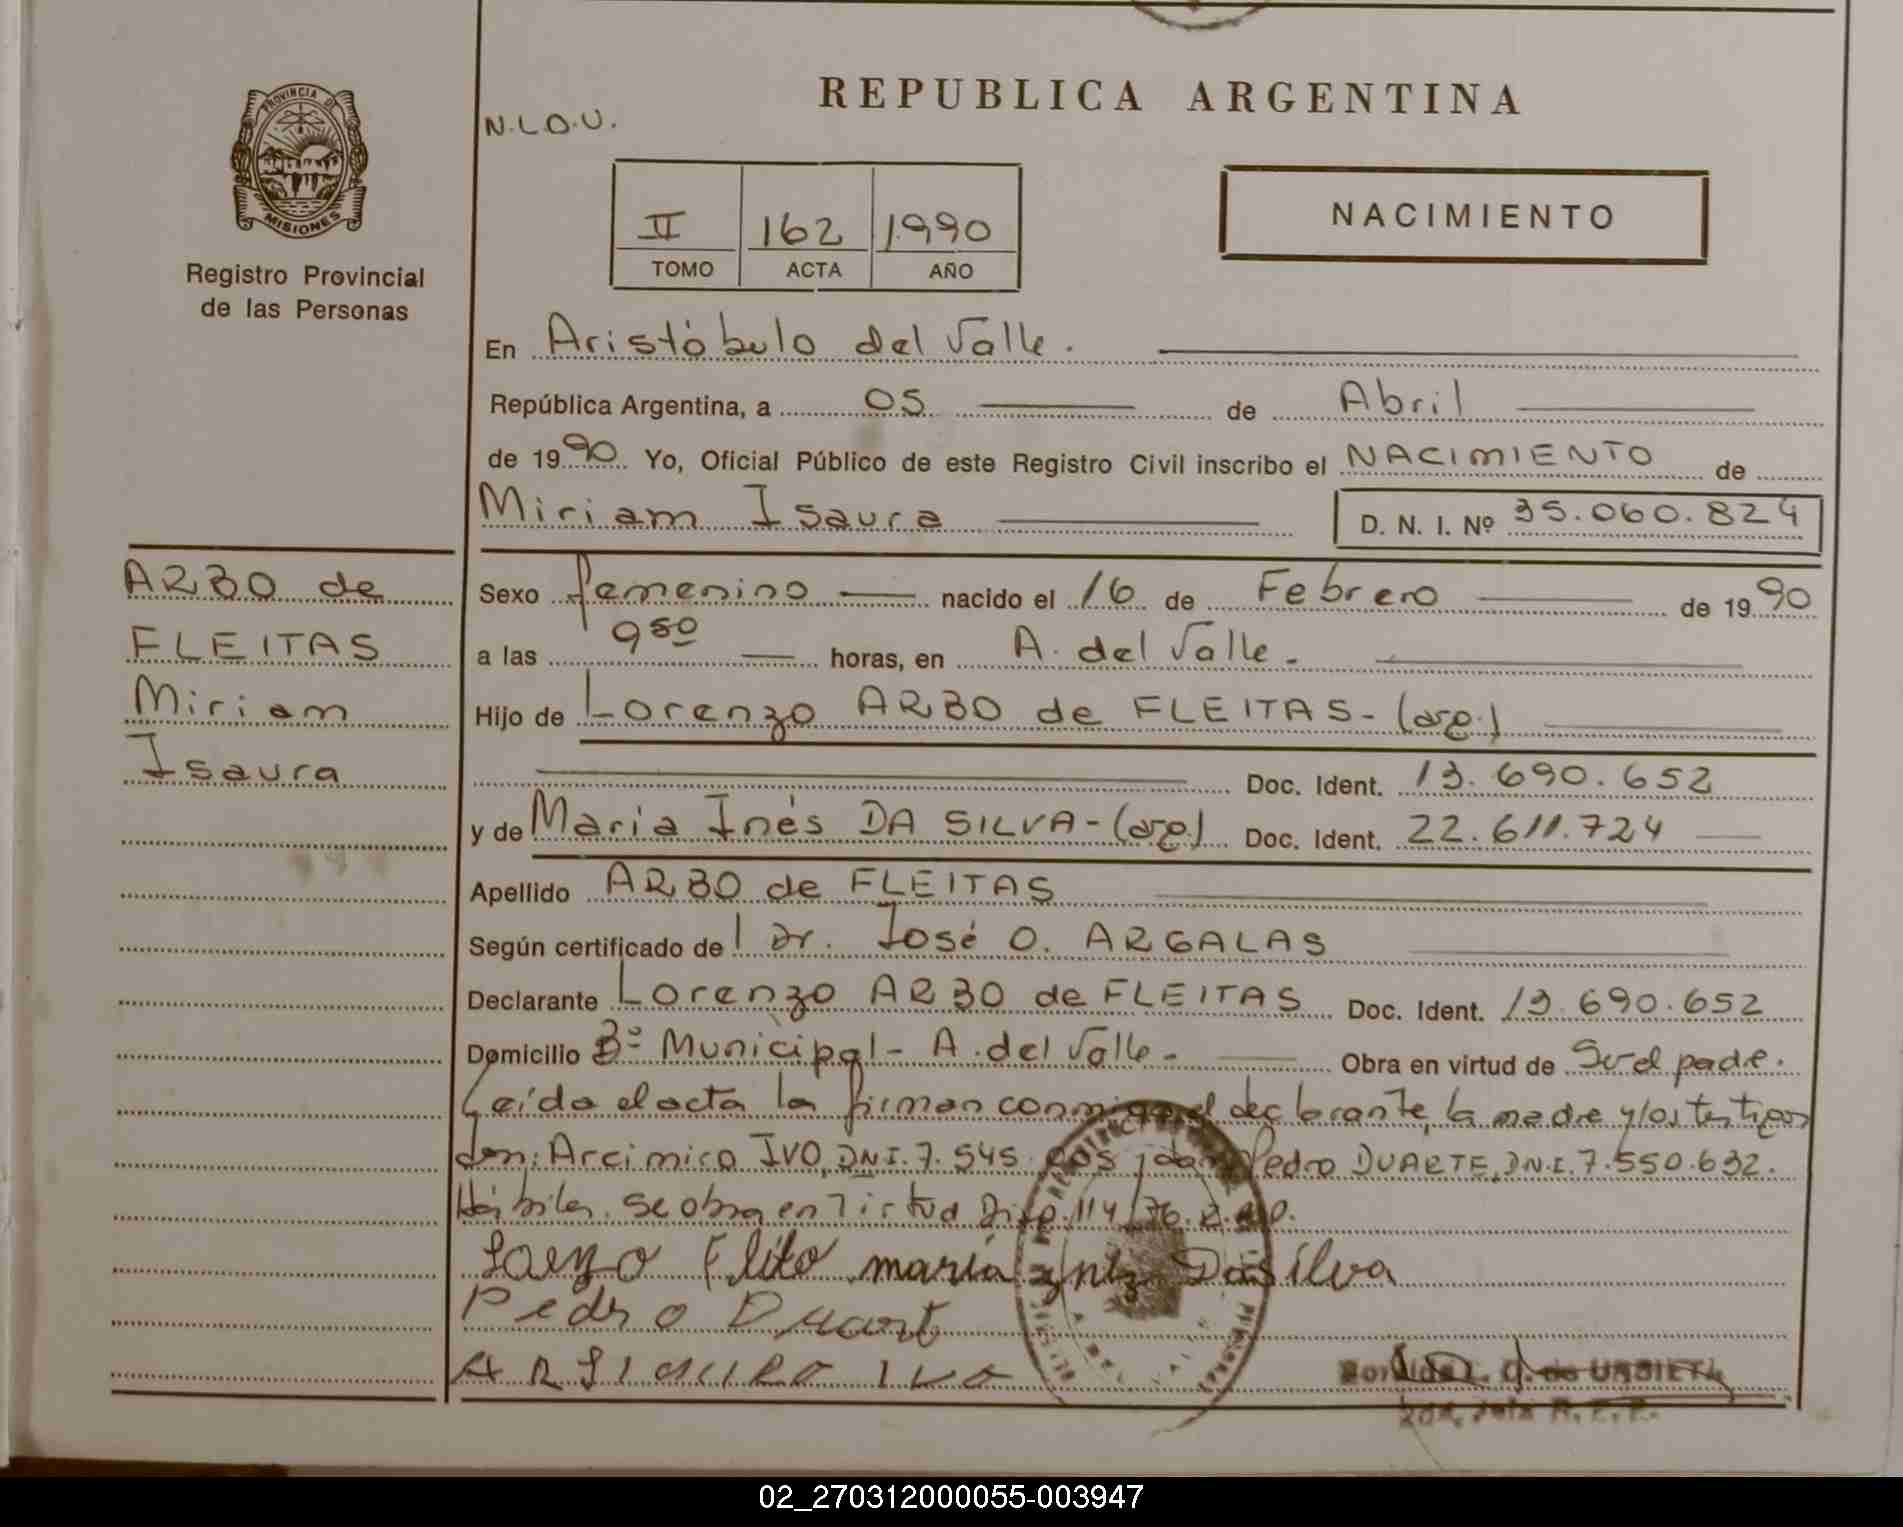 PROVINCIA DE
MISIONES
Registro Provincial
de las Personas
N.L.O.U.
REPUBLICA ARGENTINA
II 162 1990
TOMO ACTA AÑO
NACIMIENTO
En Aristóbulo del Valle.
República Argentina, a 05 de Abril
de 1990 Yo, Oficial Público de este Registro Civil inscribo el NACIMIENTO de
Miriam Isaura D. N. I. Nº 35.060.824
ARBO de
FLEITAS
Miriam
Isaura
Sexo femenino nacido el 16 de Febrero de 1990
a las 9 50 horas, en A. del Valle.
Hijo de Lorenzo ARBO de FLEITAS - (arg.)
Doc. Ident. 13.690.652
y de Maria Inés DA SILVA - (arg.) Doc. Ident. 22.611.724
Apellido ARBO de FLEITAS
Según certificado de l Dr. José O. ARGALAS
Declarante Lorenzo ARBO de FLEITAS Doc. Ident. 13.690.652
Domicilio Bº Municipal - A. del Valle - Obra en virtud de Ser el padre.
Leída el acta la firman conmigo el declarante, la madre y los testigos
don: Arcimiro IVO, DNI. 7.545. don Pedro DUARTE, DN.I. 7.550.632.
Hábiles. se obra en Virtud Disp. 114/76.
Lorenzo Flito maría ynez Da silva
Pedro Duart
ARSIMIRO IVO
de URBIETA
2da. Jefa R. P. P.
02_270312000055-003947